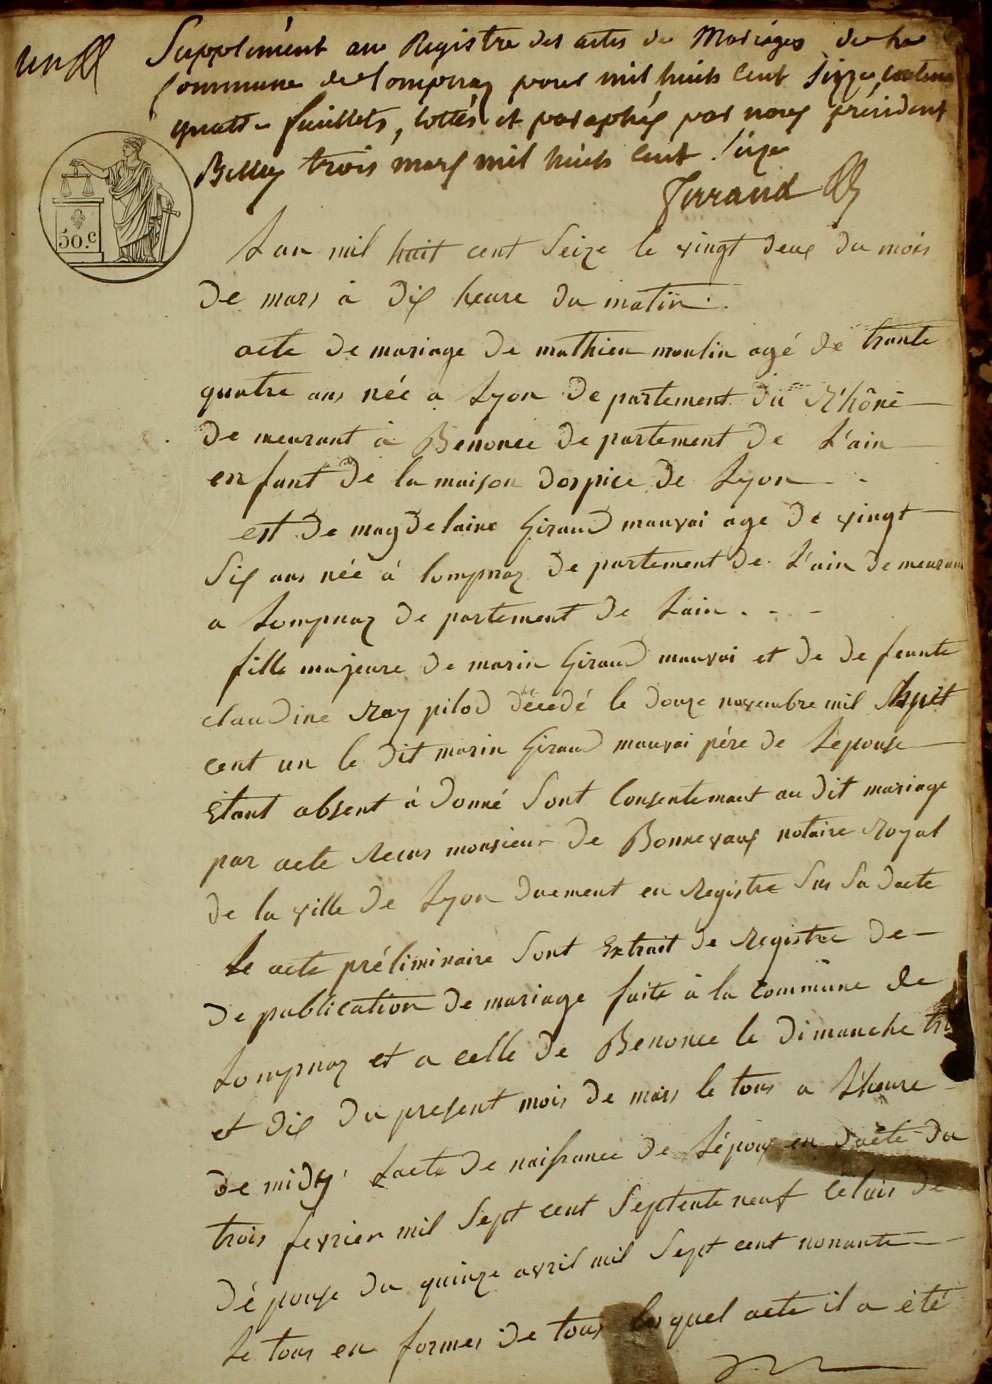 un
Supplément au Registre des actes de Mariages de la
Commune de Lompnaz pour mil huit cent Seize contenant
quatre feuillets, cottés et paraphés par nous président
Belley trois mars mil huit cent Seize
Ferrand
50.c
L'an mil huit cent Seize le vingt deux du mois
de mars à dix heure du matin.
acte de mariage de mathieu moulin agé de trante
quatre ans née a Lyon departement du Rhône
de meurant à Benonce departement de L'ain
enfant de la maison dospice de Lyon
est de magdelaine Giraud mauvai age de vingt
Six ans née à lompnaz departement de L'ain demeurant
a Lompnaz departement de Lain
fille majeure de marin Giraud mauvai et de defeunte
claudine Ray pilod décedé le douze novembre mil huit
cent un le dit marin Giraud mauvai père de Lepouse
Etant absent à donné Sont Consentemant au dit mariage
par acte Recus monsieur de Bonnevaux notaire Royal
de la ville de Lyon duement en Registre Sus Sa dacte
Le acte préliminaire Sont Extrait de Registre de
de publication de mariage faite à la Commune de
Lompnaz et a celle de Benonce le dimanche
et dix du present mois de mars le tous a L'heure
de midy Lacte de naissance de Lépoux en dacte du
trois fevrier mil Sept cent Septente neuf Celuis de
dépouse du quinze avril mil Sept cent nonante
Le tous en formes de tous lesquel acte il a été